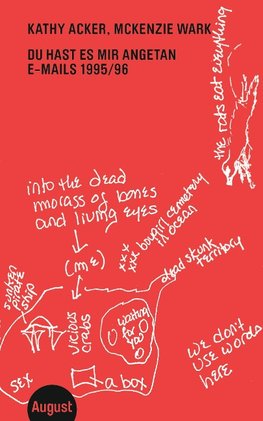 KATHY ACKER, MCKENZIE WARK
DU HAST ES MIR ANGETAN
E-MAILS 1995/96
the rats eat everything
into the dead
morass of bones
and living eyes
(me)
xxx boygirl cemetery
xxx in ocean
dead skunk
territory
sunken
pirate
ship
vicious
crabs
waiting
for
you
we don't
use words
here
sex
a box
August